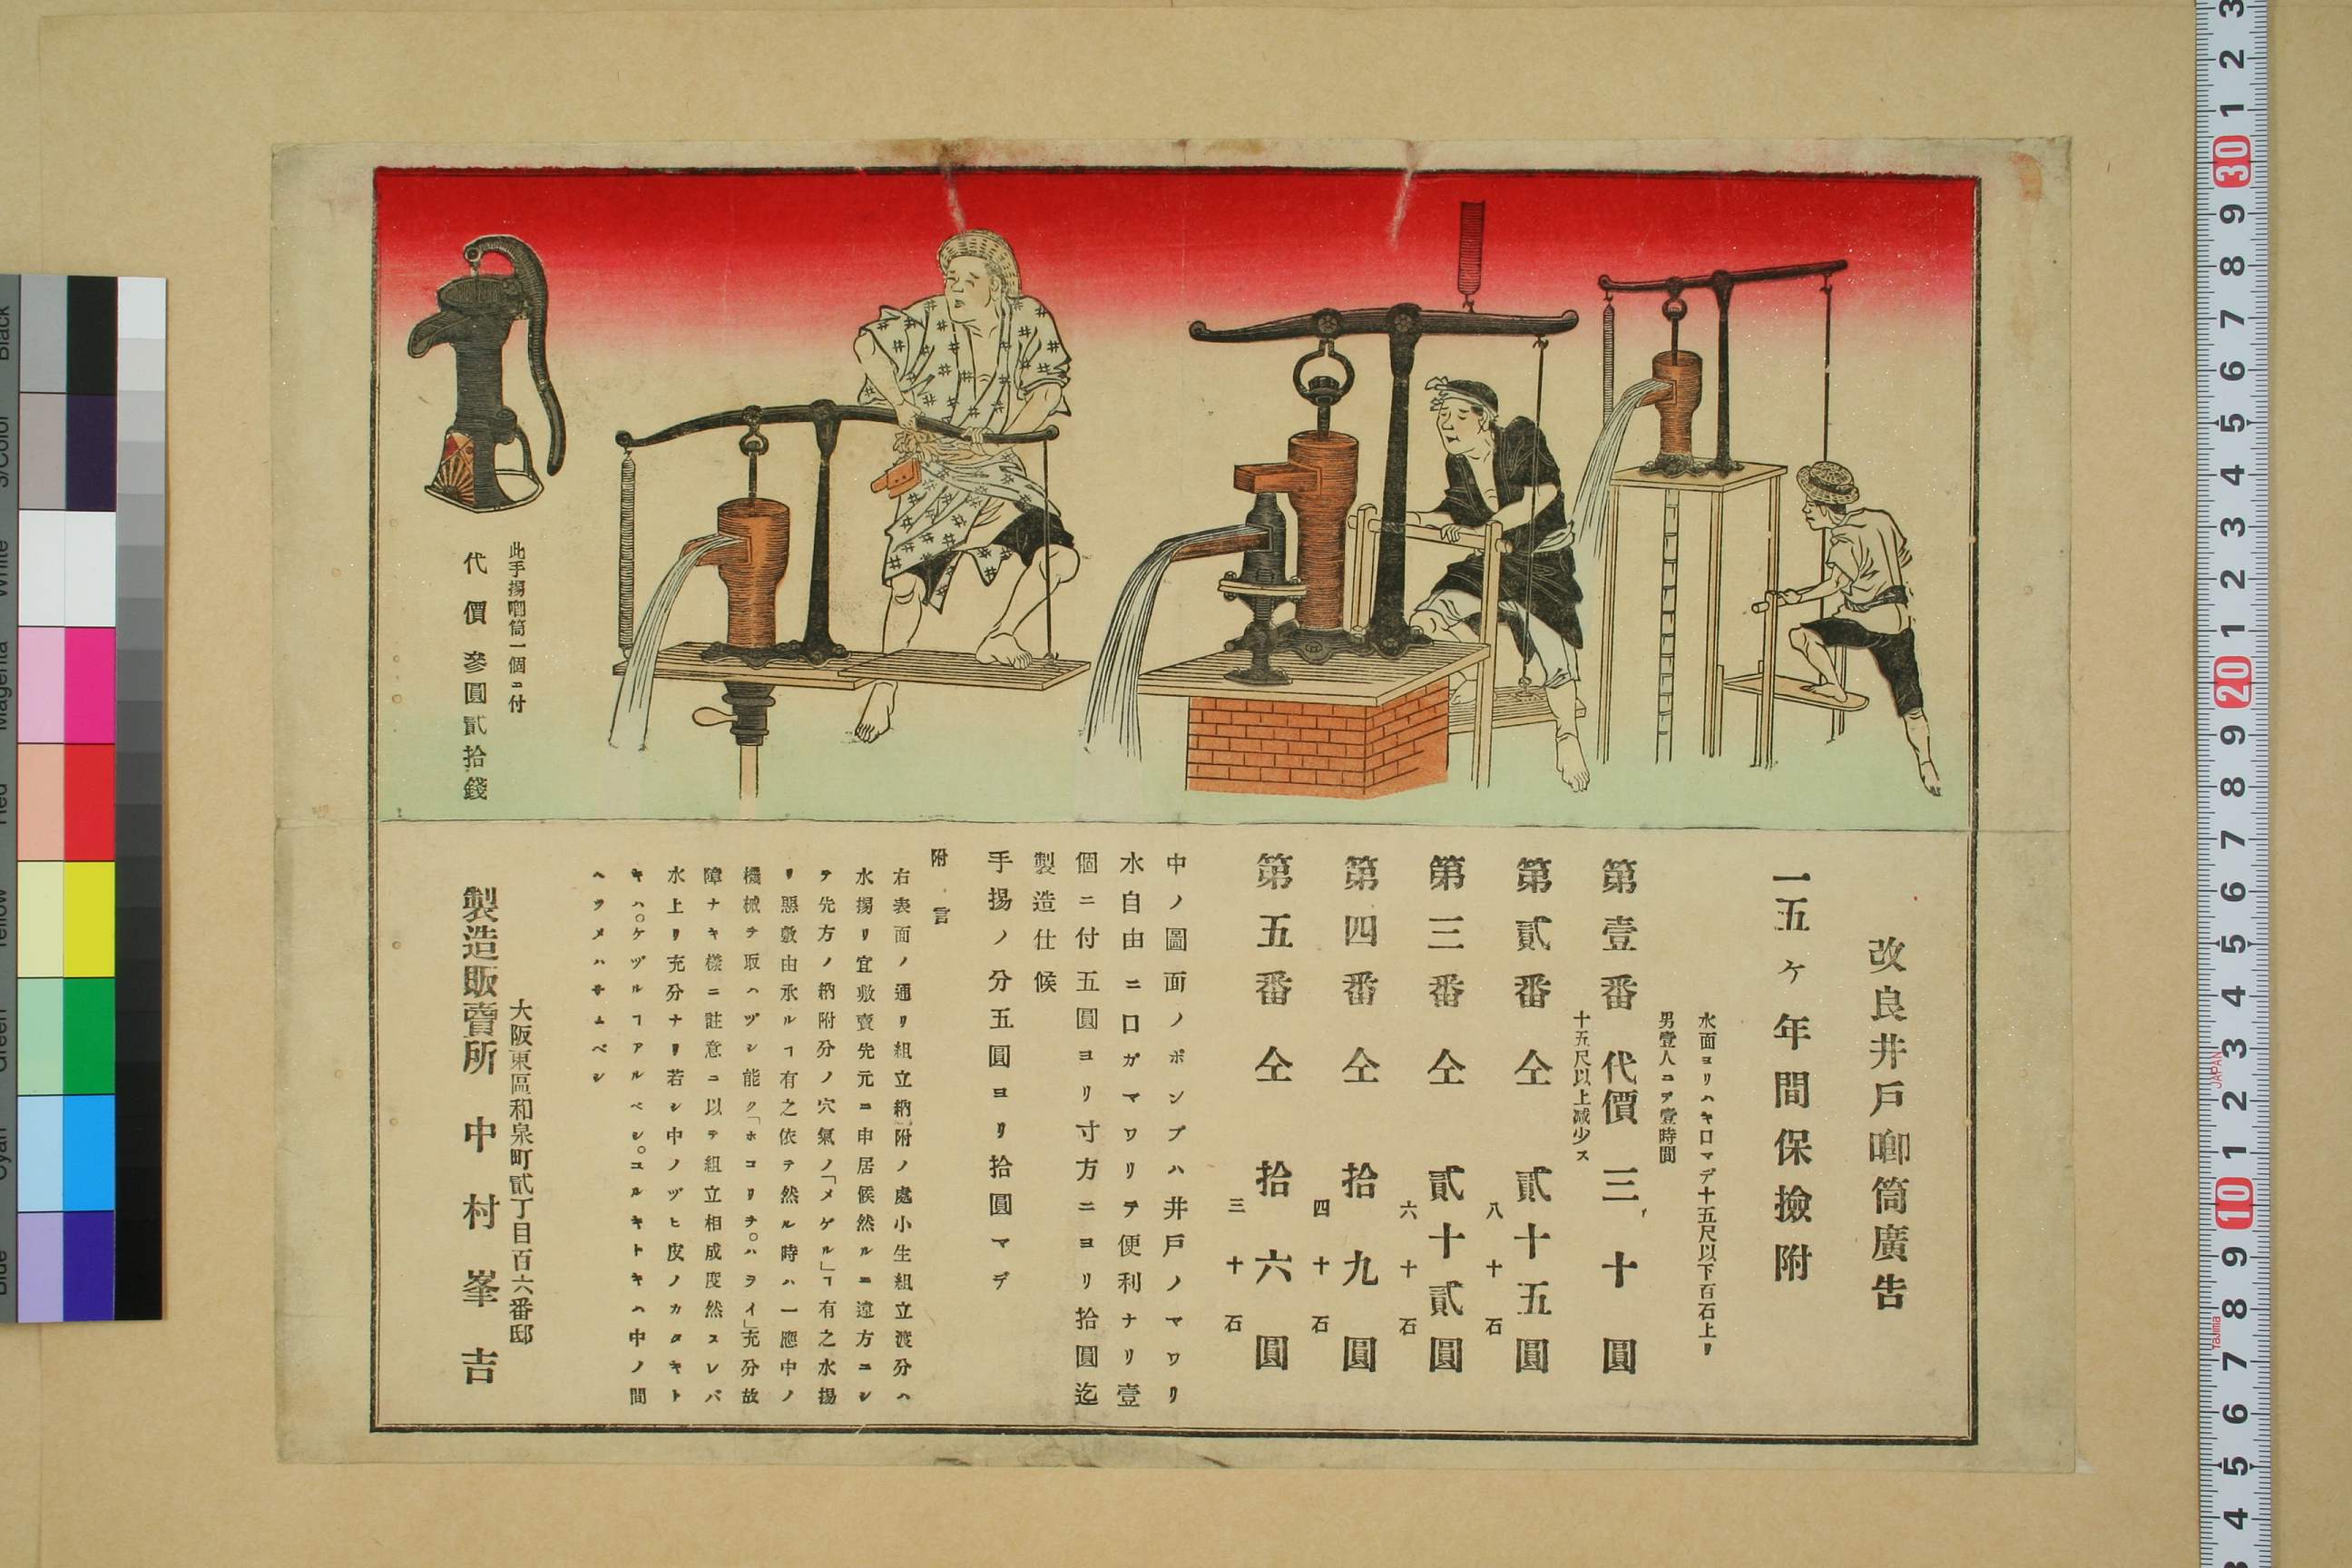 此手揚喞筒一個ニ付
代價參圓貳拾錢
改良井戸喞筒廣告
一五ケ年間保撿附
水面ヨリハキロマデ十五尺以下百石上リ
男壹人ニテ壹時間
第壹番 代價 三十圓
十五尺以上减少ス
八十石
第貳番 仝 貳十五圓
六十石
第三番 仝 貳十貳圓
四十石
第四番 仝 拾九圓
三十石
第五番 仝 拾六圓
中ノ圖面ノポンプハ井戸ノマワリ
水自由ニ口ガマワリテ便利ナリ壹
個ニ付五圓ヨリ寸方ニヨリ拾圓迄
製造仕候
手揚ノ分五圓ヨリ拾圓マデ
附言
右表面ノ通リ組立納附ノ處小生組立渡分ハ
水揚リ宜敷賣先元ニ申居候然ルニ遠方ニシ
テ先方ノ納附分ノ穴氣ノ「メゲル」ヿ有之水揚
リ惡敷由承ルヿ有之依テ然ル時ハ一應中ノ
機械ヲ取ハヅシ能ク「ホコリヲ。ハヲイ」充分故
障ナキ樣ニ註意ニ以テ組立相成度然スレバ
水上リ充分ナリ若シ中ノヅヒ皮ノカタキト
キハ。ケヅルヿアルベシ。ユルキトキハ中ノ間
ヘラメハサムベシ
大阪東區和泉町貳丁目百六番邸
製造販賣所 中村峯吉
30
20
10
JAPAN
Tajima